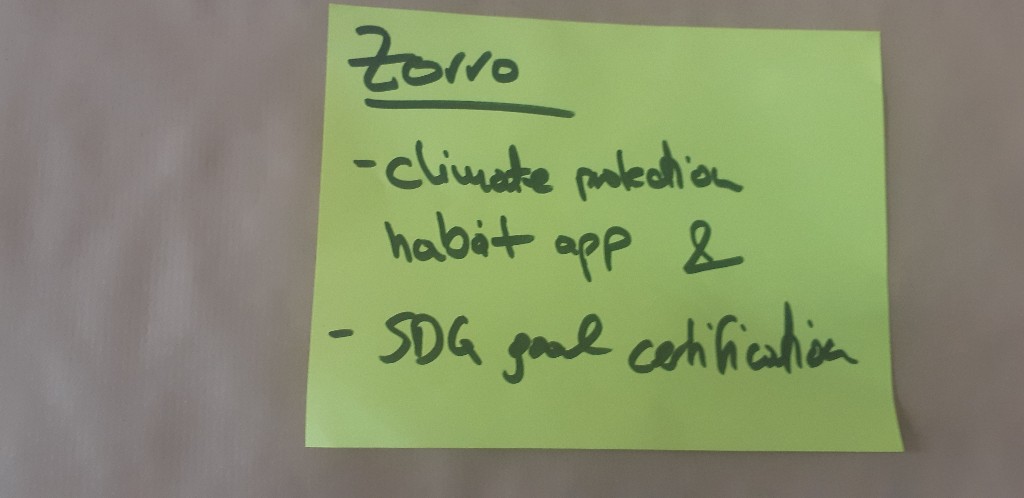 Zorro
- climate protection
habit app &
- SDG goal certification